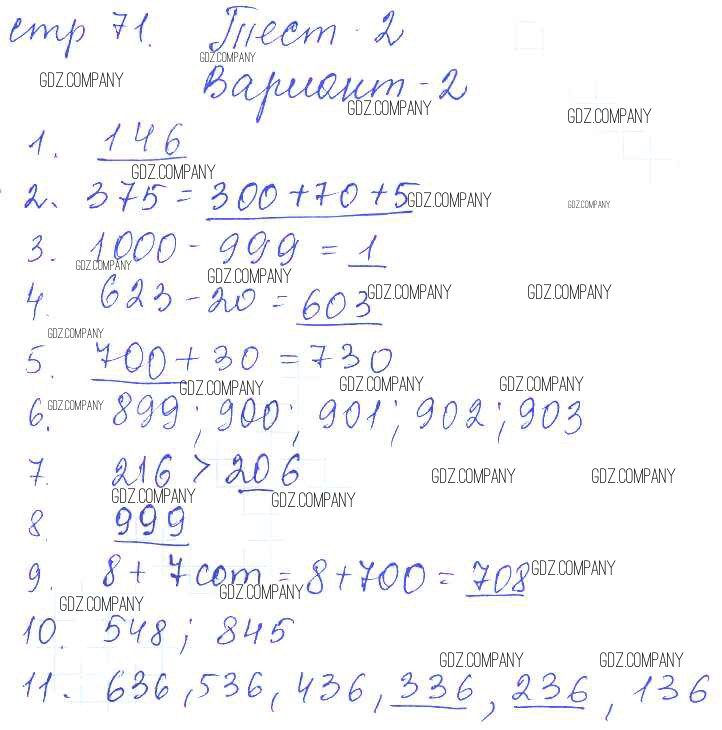 стр 71. Тест - 2
GDZ.COMPANY
GDZ.COMPANY
Вариант - 2
GDZ.COMPANY
GDZ.COMPANY
1. 146
GDZ.COMPANY
2. 375 = 300+70+5
GDZ.COMPANY
GDZ.COMPANY
3. 1000 - 999 = 1
GDZ.COMPANY
GDZ.COMPANY
4. 623 - 20 = 603
GDZ.COMPANY
GDZ.COMPANY
GDZ.COMPANY
5. 700 + 30 = 730
GDZ.COMPANY
GDZ.COMPANY
GDZ.COMPANY
6. 899; 900; 901; 902; 903
GDZ.COMPANY
7. 216 > 206
GDZ.COMPANY
GDZ.COMPANY
GDZ.COMPANY
GDZ.COMPANY
8. 999
9. 8 + 7 сот = 8+700 = 708
GDZ.COMPANY
GDZ.COMPANY
GDZ.COMPANY
10. 548; 845
GDZ.COMPANY
GDZ.COMPANY
11. 636, 536, 436, 336, 236, 136